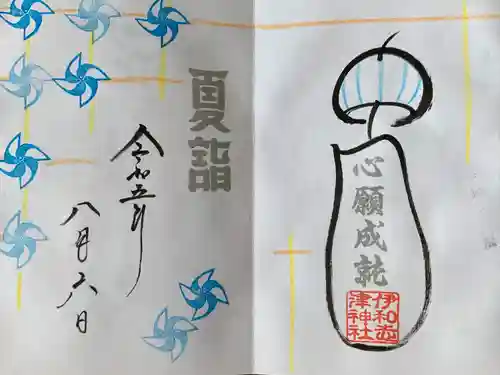 心願成就
伊和志
津神社
夏詣
令和五年
八月六日